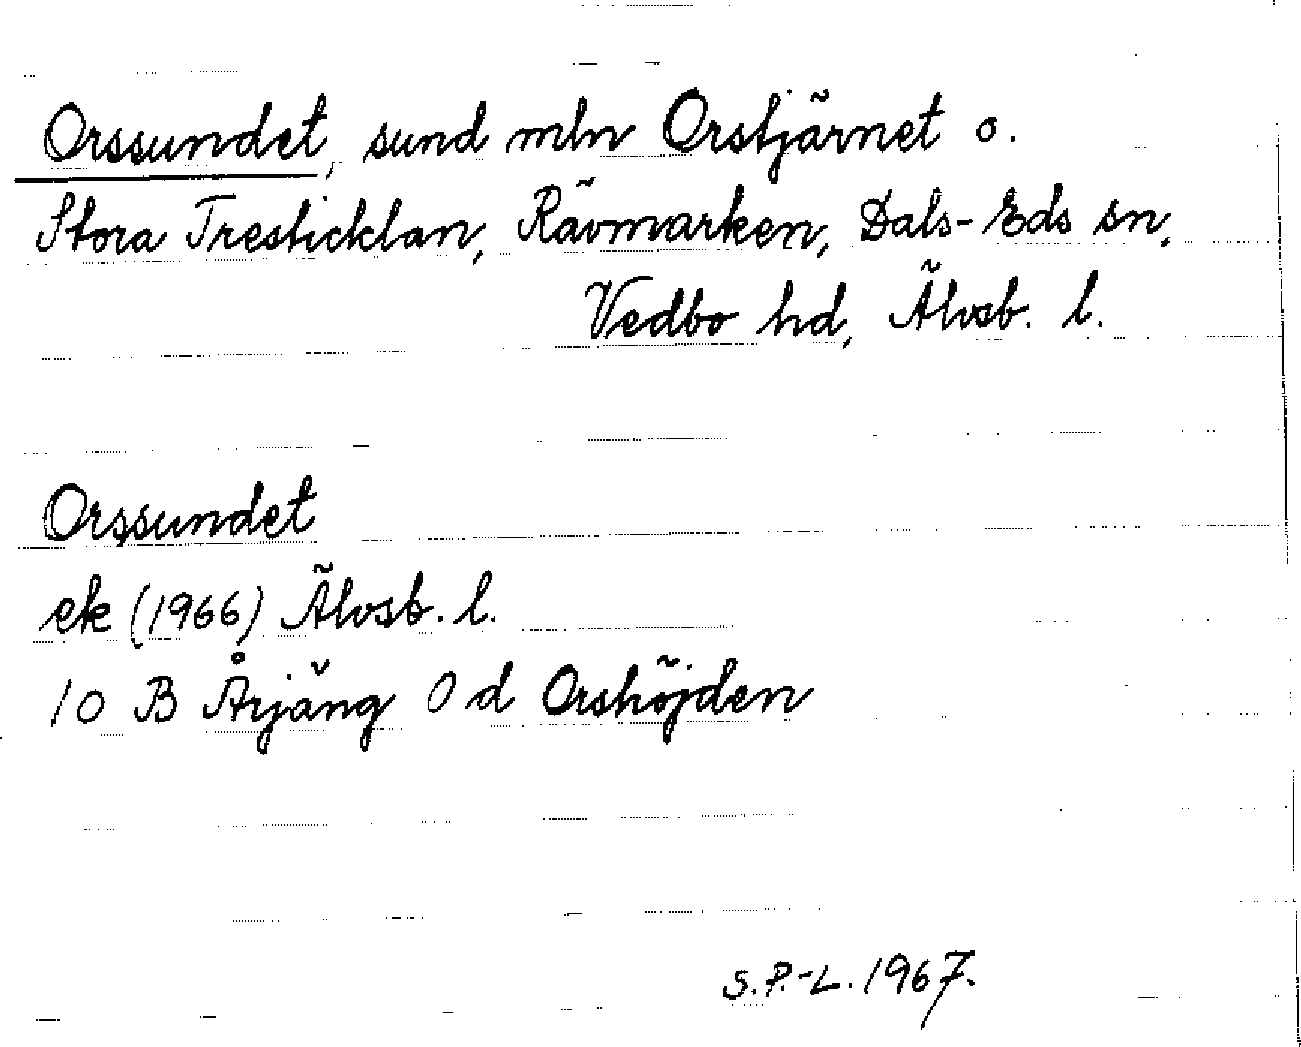 Orssundet, sund mln Orstjärnet o.
Stora Tresticklan, Rävmarken, Dals-Eds sn,
Vedbo hd, Älvsb. l.
Orssundet
ek (1966) Älvsb. l.
10 B Årjäng 0 d Orshöjden
S.P.-L. 1967.